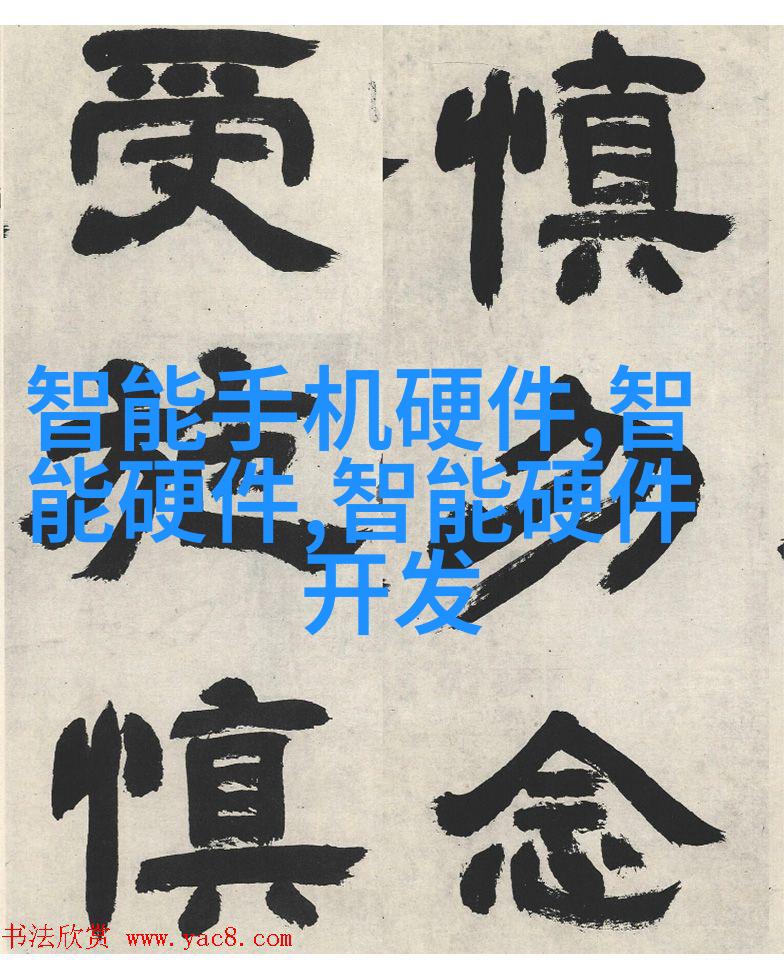 慎勿念
受施慎
智能手机硬件,智
能硬件,智能硬件
开发
书法欣赏 www.yac8.com